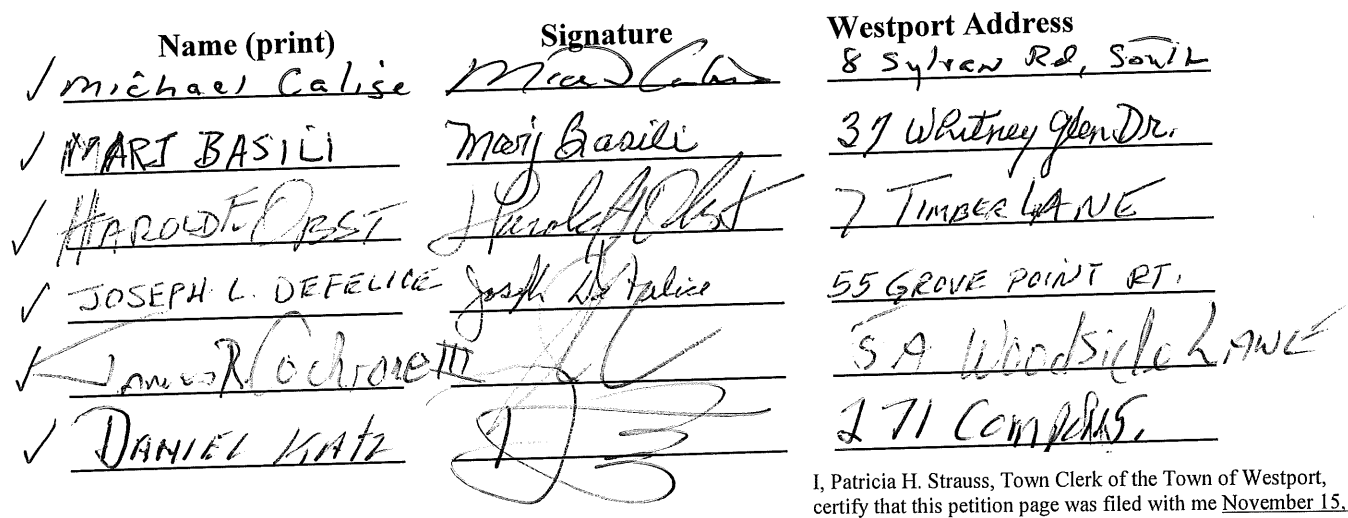 Name (print) Signature Westport Address
✓ Michael Calise 8 Sylvan Rd, South
✓ MARJ BASILI Marj Basili 37 Whitney Glen Dr.
✓ HAROLD F. OBST Harold F Obst 7 TIMBER LANE
✓ JOSEPH L. DEFELICE Joseph De Felice 55 GROVE POINT RT.
✓ James R Cochrane III 5 A Woodside LANE
✓ DANIEL KATZ 271
I, Patricia H. Strauss, Town Clerk of the Town of Westport,
certify that this petition page was filed with me November 15,